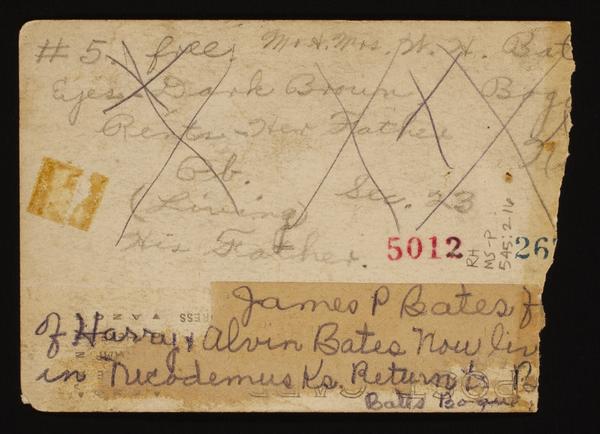 #5. free. Mr. & Mrs. W. H. Bat
Eyes - Dark Brown Bogu
Rests - Her Father
Pb.
(Living) Sec. 23
His Father.
5012 267
RH
MS-P
545:2.16
James P Bates f
of Harry, Alvin Bates Now liv
in Nicodemus Ks. Return to B
Bates Bogue